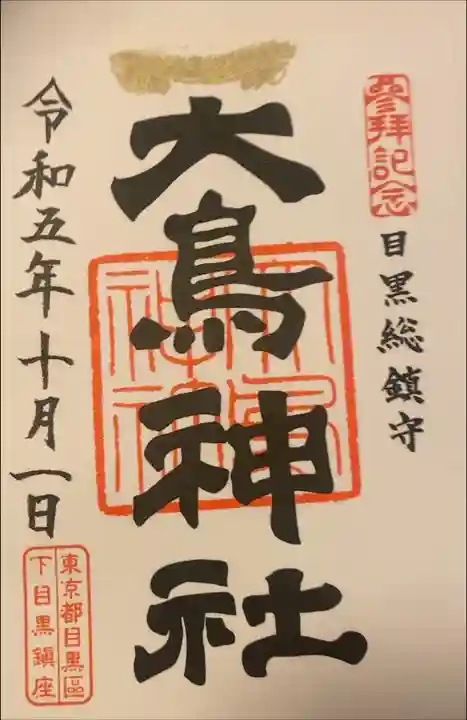 參拝記念
目黒総鎮守
大鳥神社
令和五年十月一日
東京都目黒區
下目黒鎮座